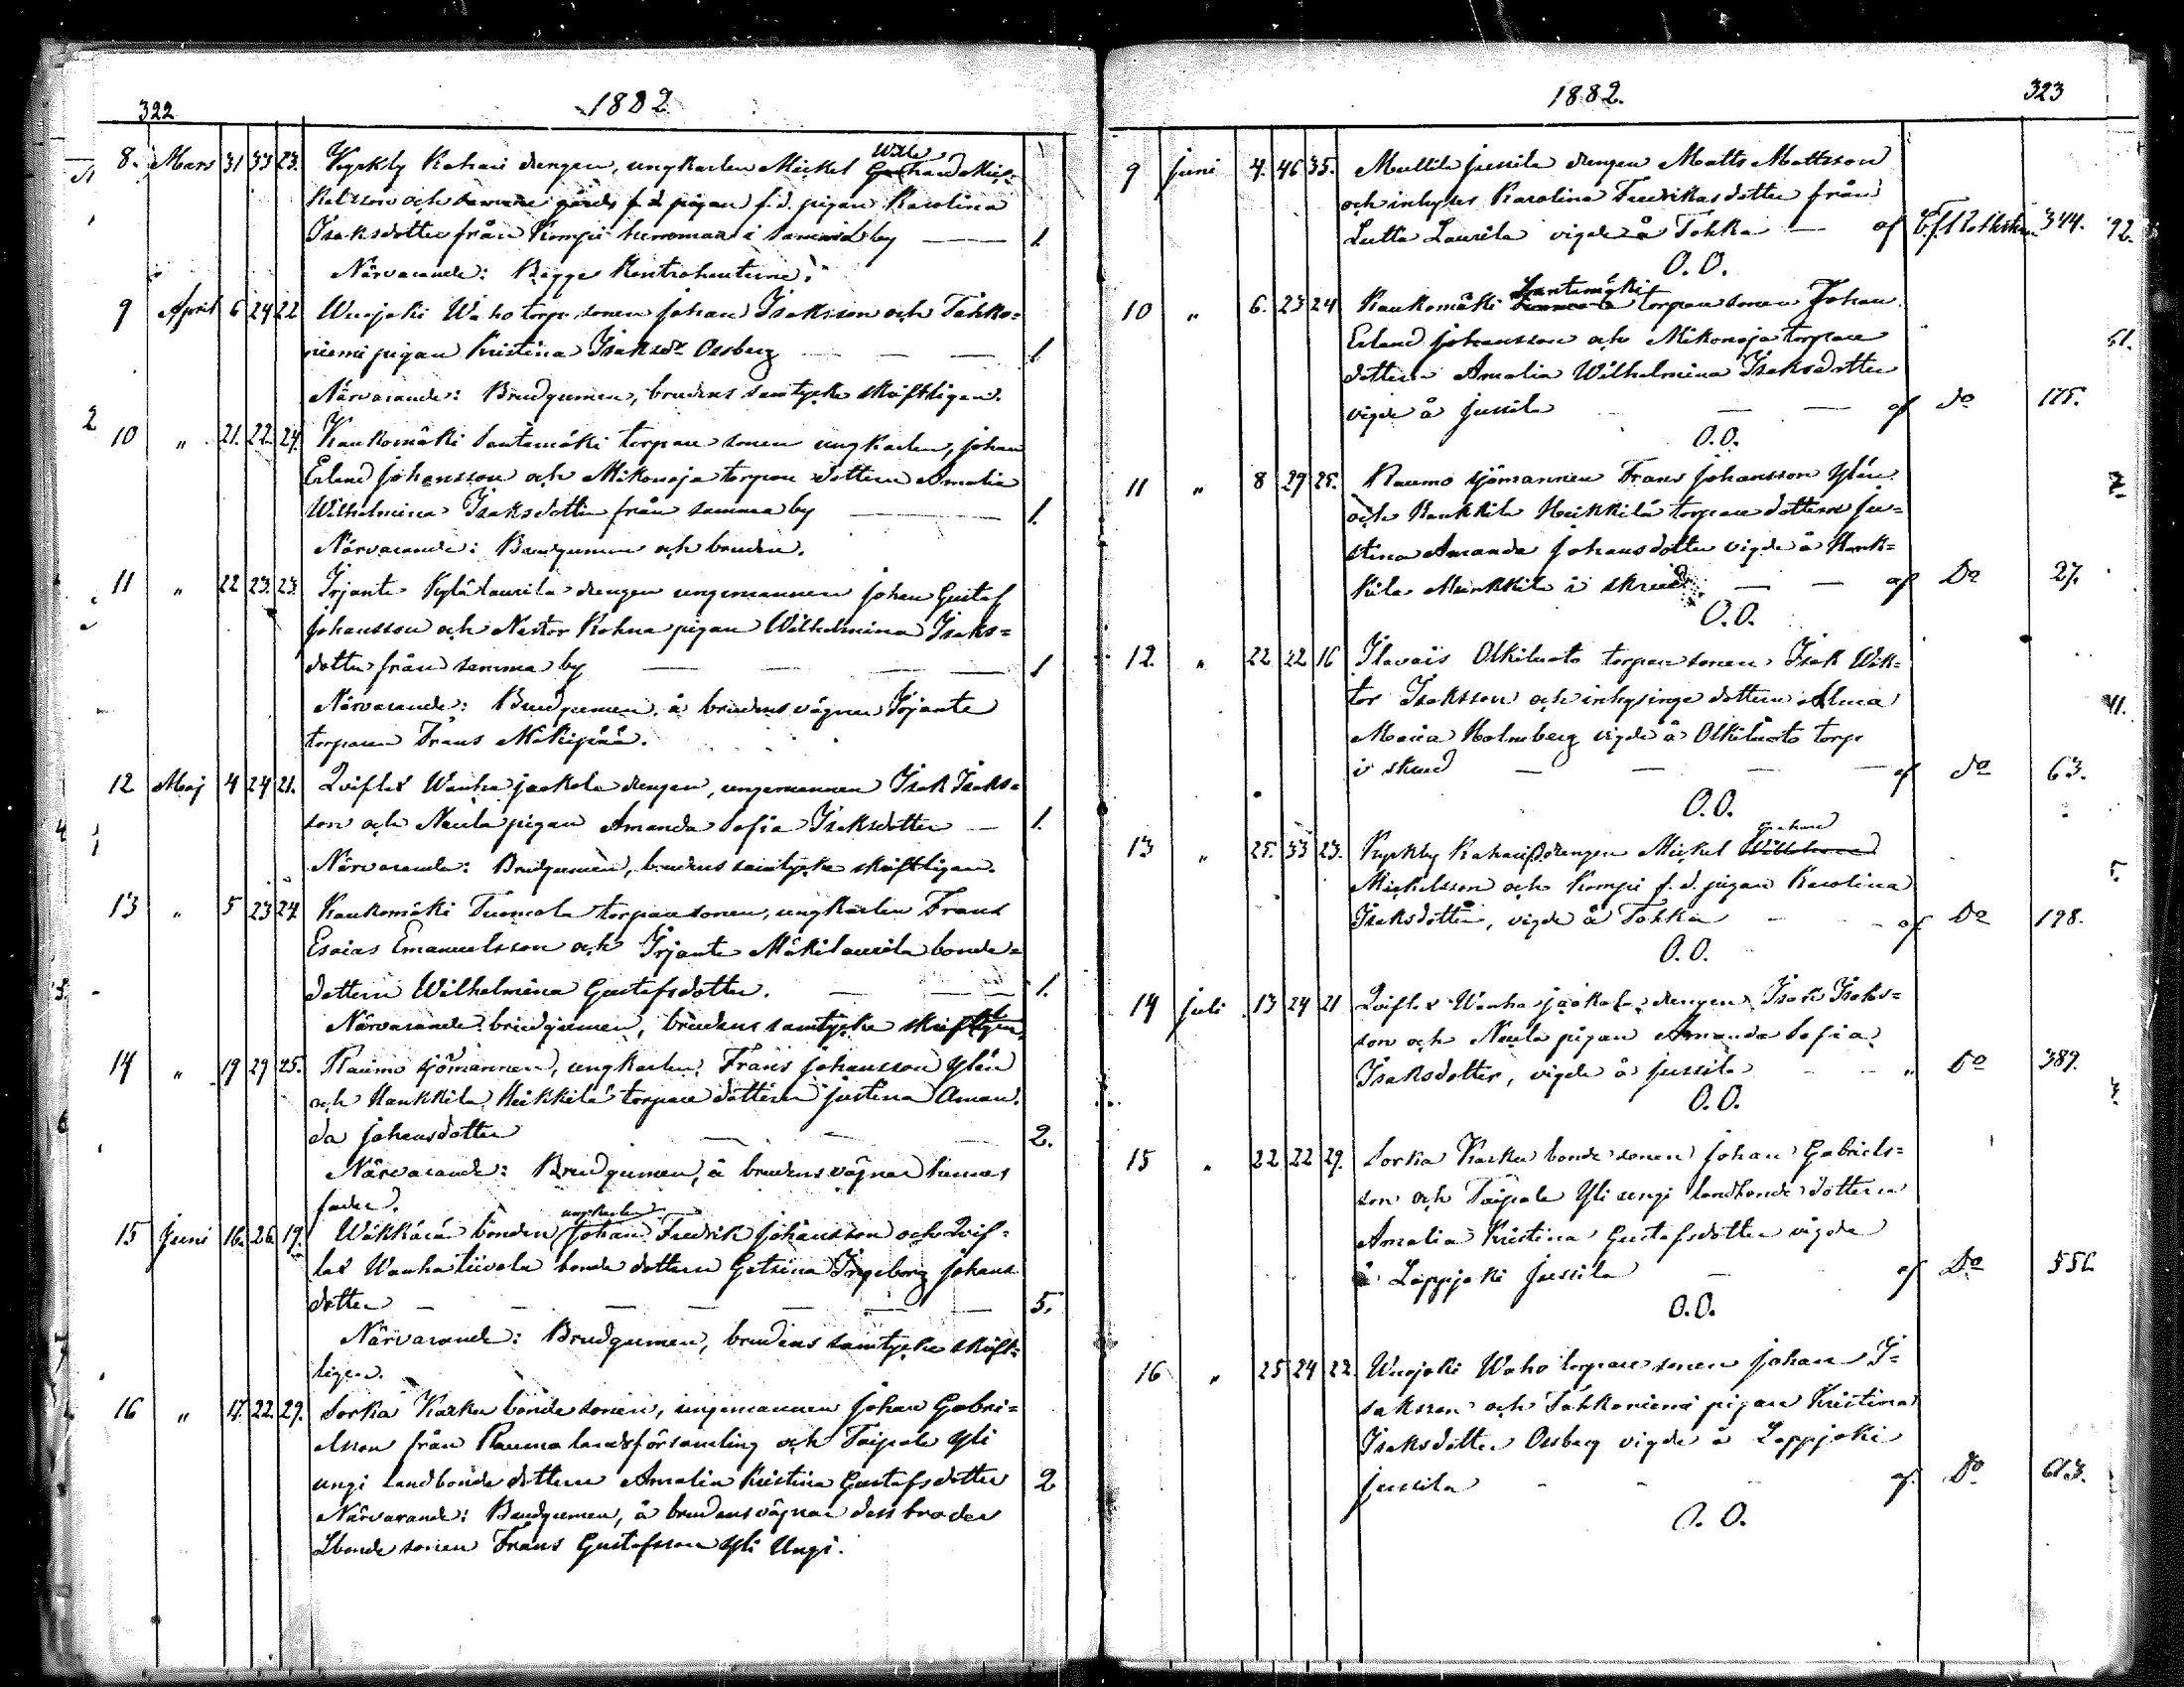 322
1882
8. Mars 31 33 23. Kyrkby Rahari drengen, ungkarlen Mickel Gerhard Mic-
Wilh
kelsson och samma gårds f.d. pigan f.d. pigan Karolina
Isaksdotter från Kompi hemman i samma by — 1
Närvarande: Bägge Kontrahenterne.
9 April 6 24 22 Wuojoki Waho torp. sonen Johan Isaksson och Tahko-
niemi pigan Kristina Isaksdr Ossberg — — 1.
Närvarande: Brudgumen, brudens samtycke skriftligen.
10 " 21. 22. 24. Kaukomäki Santamäki torpare sonen ungkarlen, Johan
Erland Johansson och Mikonoja torpare dottern Amalia
Wilhelmina Isaksdotter från samma by — 1.
Närvarande: Brudgumen och bruden.
11 " 22 23. 23. Irjante Kylälaurila drengen ungemannen Johan Gustaf
Johansson och Nestor Rohna pigan Wilhelmina Isaks-
dotter från samma by — — — 1
Närvarande: Brudgumen, å brudens vägnar Irjante
torparen Frans Mäkipää.
12 Maj 4 24 21. Qviflax Wanhajaakola drengen, ungemannen Isak Isaks-
son och Neula pigan Amanda Sofia Isaksdotter — 1.
Närvarande: Brudgumen, brudens samtycke skriftligen.
13 " 5 23 24. Kaukomäki Tuomola torpare sonen, ungkarlen Frans
Esaias Emanuelsson och Irjante Mäkilaurila bonde-
dottern Wilhelmina Gustafsdotter. — — 1.
Närvarande brudgumen, brudens samtycke skriftligen.
14 " 19 29 25. Raumo sjömannen, ungkarlen, Frans Johansson Ylén
och Hankkila Heikkilä torpare dottern Justina Aman-
da Johansdotter — — — 2.
Närvarande: Brudgumen, å brudens vägnar hennes
fader.
15 Juni 16. 26. 19. Wäkkärä bonden ungkarlen Johan Fredrik Johansson och Qvif-
lax Wanhatiivola bonde dottern Getsina Ingeborg Johans
dotter — — — — — 5.
Närvarande: Brudgumen, brudens samtycke skrift-
ligen.
16 " 17. 22. 29. Sorka Karka bonde sonen, ungemannen Johan Gabri-
elsson från Rauma landsförsamling och Taipale Yli
ungi landbonde dottern Amalia Kristina Gustafsdotter 2
Närvarande: Brudgumen, å brudens vägnar dess broder
Lbonde sonen Frans Gustafsson Yli Ungi.
1882.
323
9 Juni 4. 46 35. Mullila Jussila drengen Matts Mattsson
och inhyses Karolina Fredriksdotter från
Lutta Laurila vigde å Tokka — af 344.
O.O.
10 " 6. 23 24 Kaukomäki Santamäki torpare sonen Johan
Erland Johansson och Mikonoja torpare
dottern Amalia Wilhelmina Isaksdotter
vigde å Jussila — — af do 175.
O.O.
11 " 8 29 25. Raumo sjömannen Frans Johansson Ylén
och Hankkila Heikkilä torpare dottern Ju-
stina Amanda Johansdotter vigde å Hank-
kila Heikkilä i skrud. — — af Do 27.
O.O.
12. " 22 22 16 Ilavais Olkiluoto torpare sonen Isak Wik-
tor Isaksson och inhysinge dottern Alma
Maria Holmberg vigde å Olkiluoto torp
i skrud — — — — af do 63.
O.O.
13 " 25. 33 23. Kyrkby Rahari drengen Mickel Gerhard
Mickelsson och Kompi f.d. pigan Karolina
Isaksdotter, vigde å Tokka — — af Do 198.
O.O.
14 Juli 13 24 21 Qviflax Wanhajaakola drengen Isak Isaks-
son och Neula pigan Amanda Sofia
Isaksdotter, vigde å Jussila — — " Do 389.
O.O.
15 " 22 22 29. Sorka Karka bonde sonen Johan Gabriels-
son och Taipale Yli ungi landbonde dottern
Amalia Kristina Gustafsdotter vigde
å Lappjoki Jussila — af Do 551.
O.O.
16 " 25 24 22. Wuojoki Waho torpare sonen Johan I-
saksson och Tahkoniemi pigan Kristina
Isaksdotter Ossberg vigde å Lappjoki
Jussila — — af Do 613.
O.O.